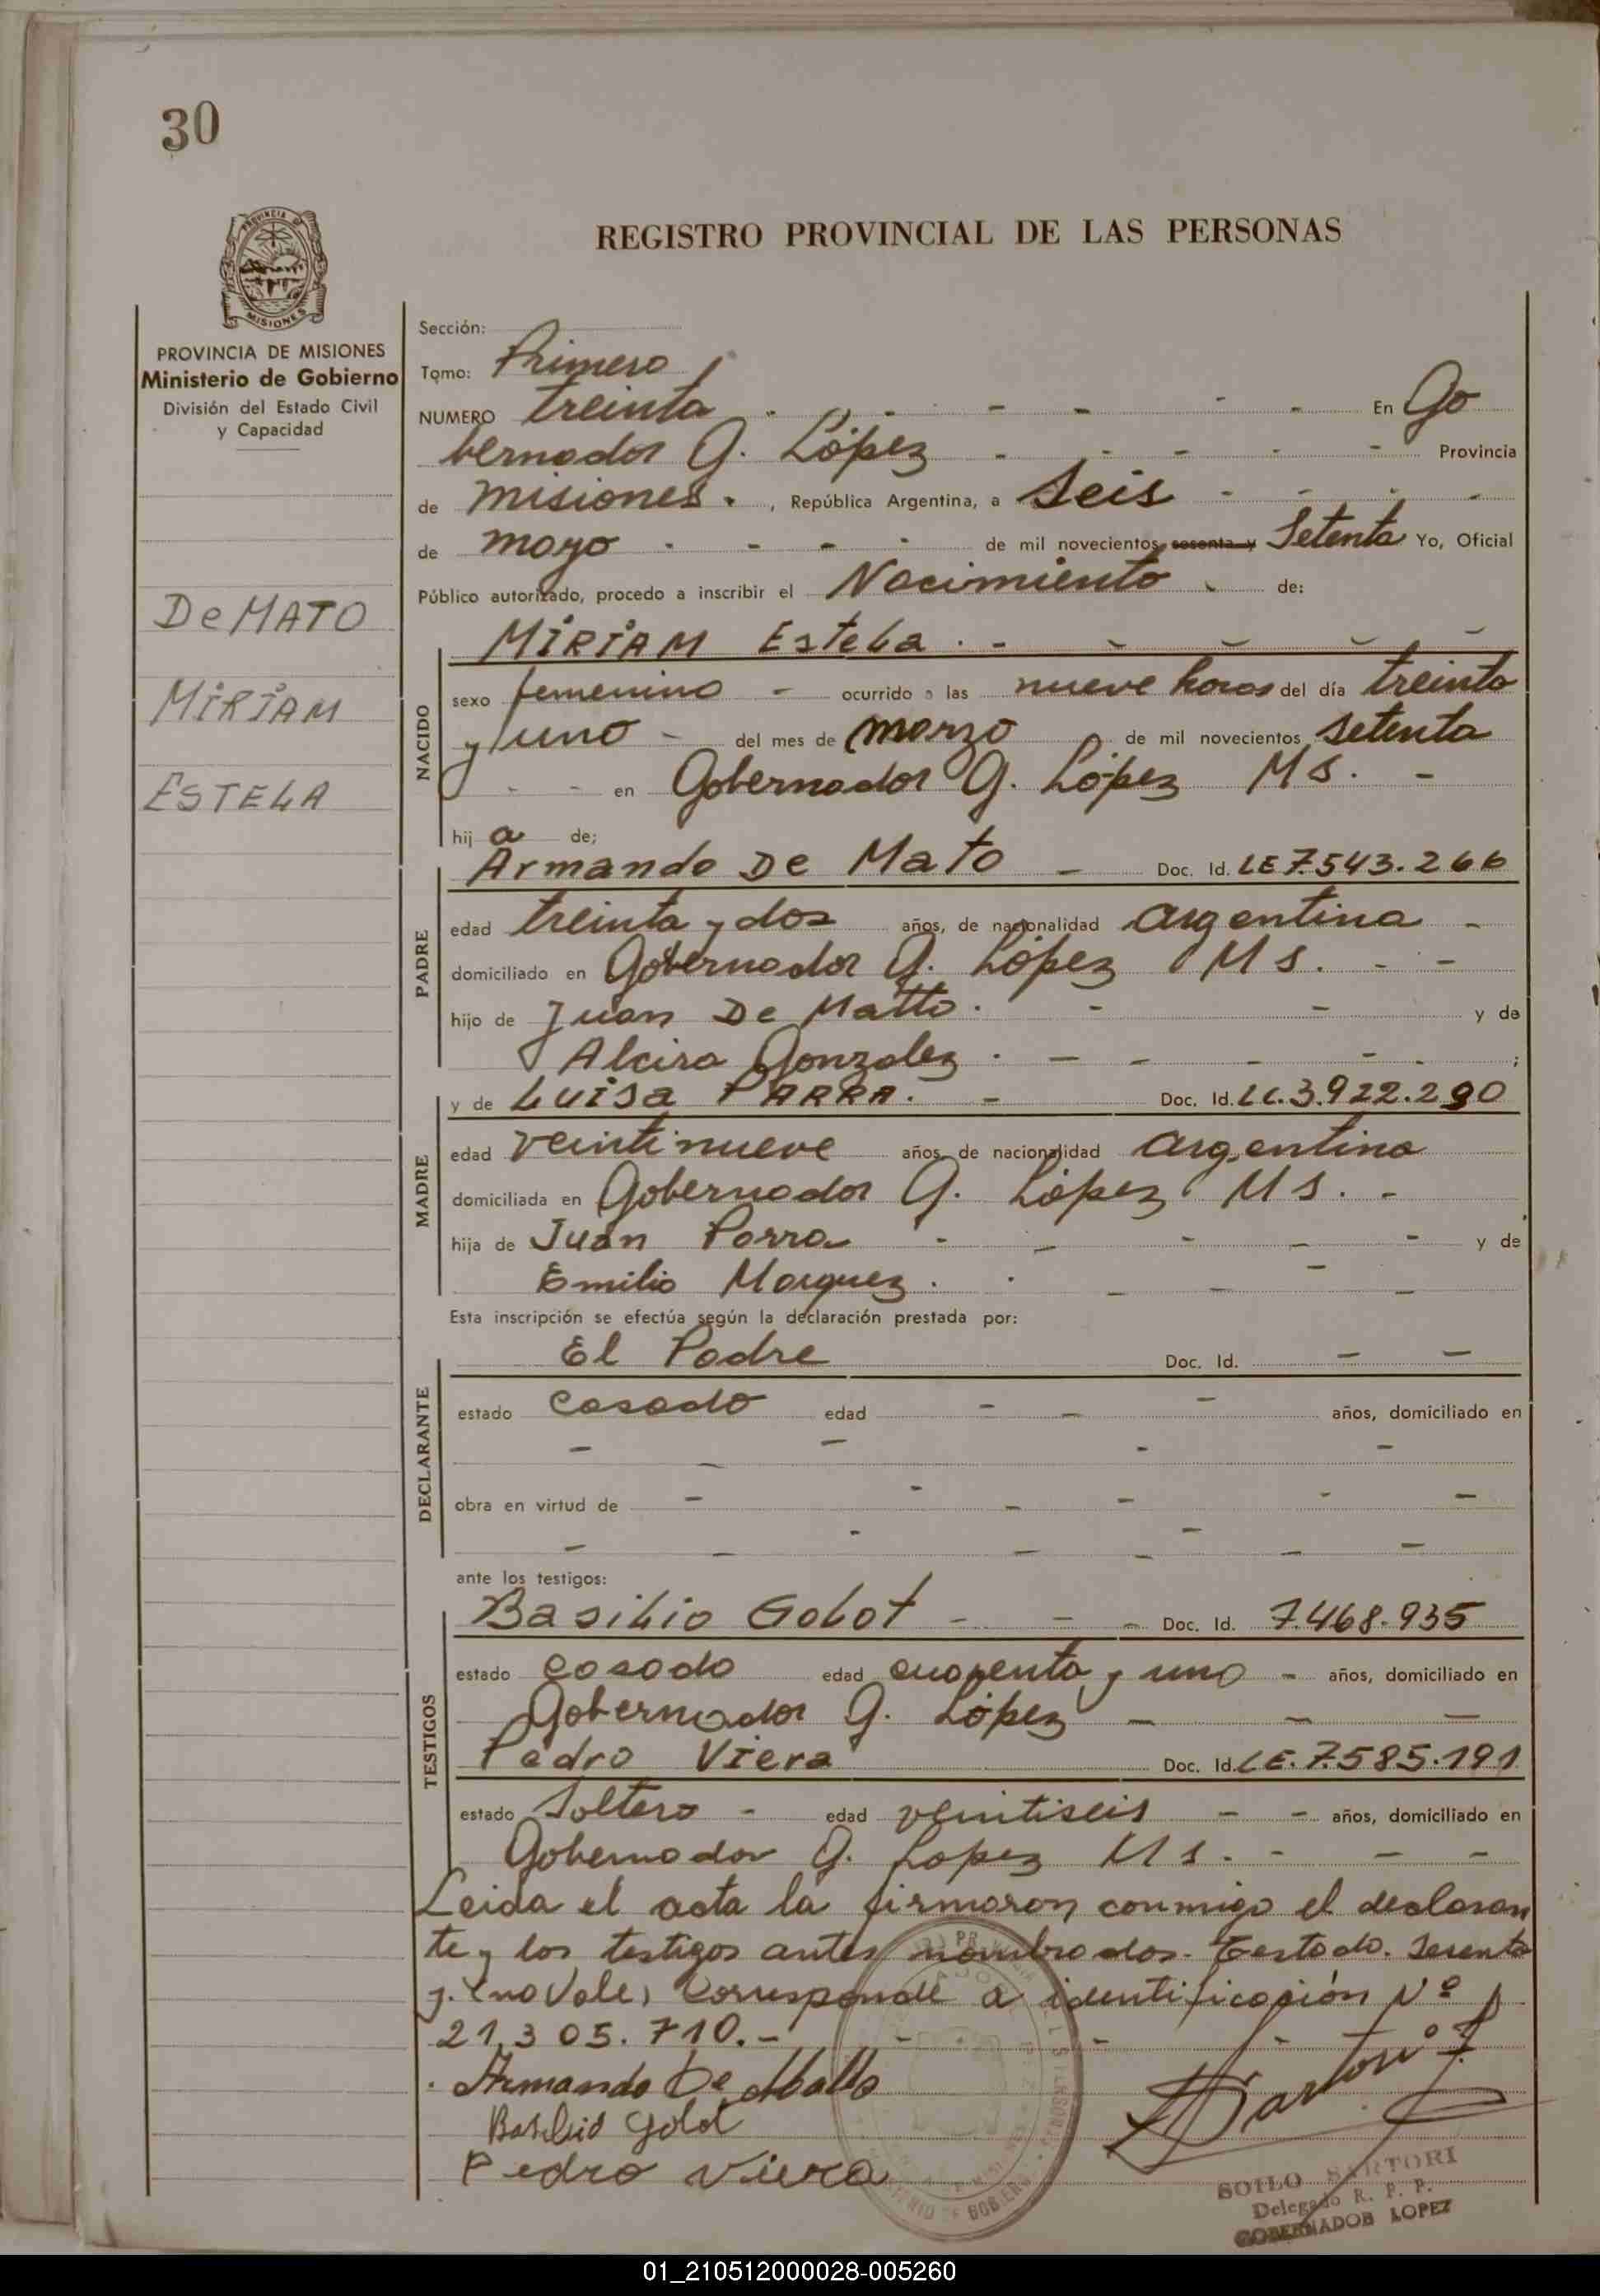 30
REGISTRO PROVINCIAL DE LAS PERSONAS
PROVINCIA DE MISIONES
MISIONES
PROVINCIA DE MISIONES
Ministerio de Gobierno
División del Estado Civil
y Capacidad
De MATO
MIRIAM
ESTELA
Sección:
Tomo: Primero
NUMERO treinta En Go
bernador G. López Provincia
de misiones. , República Argentina, a Seis
de mayo de mil novecientos sesenta y Setenta Yo, Oficial
Público autorizado, procedo a inscribir el Nacimiento de:
MIRIAM Estela
NACIDO
sexo femenino - ocurrido a las nueve horas del día treinta
y uno - del mes de marzo de mil novecientos setenta
en Gobernador G. López MS. -
hij a de;
PADRE
Armando De Mato - Doc. Id. LE 7.543.266
edad treinta y dos años, de nacionalidad argentina -
domiciliado en Gobernador G. López MS. - -
hijo de Juan De Matto. - - y de
Alcira Gonzalez . - - - - - ;
y de Luisa PARRA. - Doc. Id. LC. 3.922.290
MADRE
edad veintinueve años, de nacionalidad argentina
domiciliada en Gobernador G. López MS. -
hija de Juan Parra - - - - - y de
Emilia Marquez . . - - - -
Esta inscripción se efectúa según la declaración prestada por:
DECLARANTE
El Padre Doc. Id. - -
estado casado edad - - - años, domiciliado en
- - - - -
obra en virtud de - - - - - -
- - - - - - - -
ante los testigos:
TESTIGOS
Basilio Golot - - - Doc. Id. 7.468.935
estado casado edad cuarenta y uno - años, domiciliado en
Gobernador G. López - - -
Pedro Viera Doc. Id. LE. 7.585.191
estado Soltero - edad veintiseis - - años, domiciliado en
Gobernador G. Lopez MS. - - -
Leida el acta la firmaron conmigo el declaran
te y los testigos antes nombrados. Testado. Sesenta
y. (no Vale) Corresponde a identificación Nº
21.305.710.-
Armando De Matto
Basilio Golot
Pedro Viera
Sartori
SOILO SARTORI
Delegado R. P. P.
GOBERNADOR LOPEZ
01_210512000028-005260